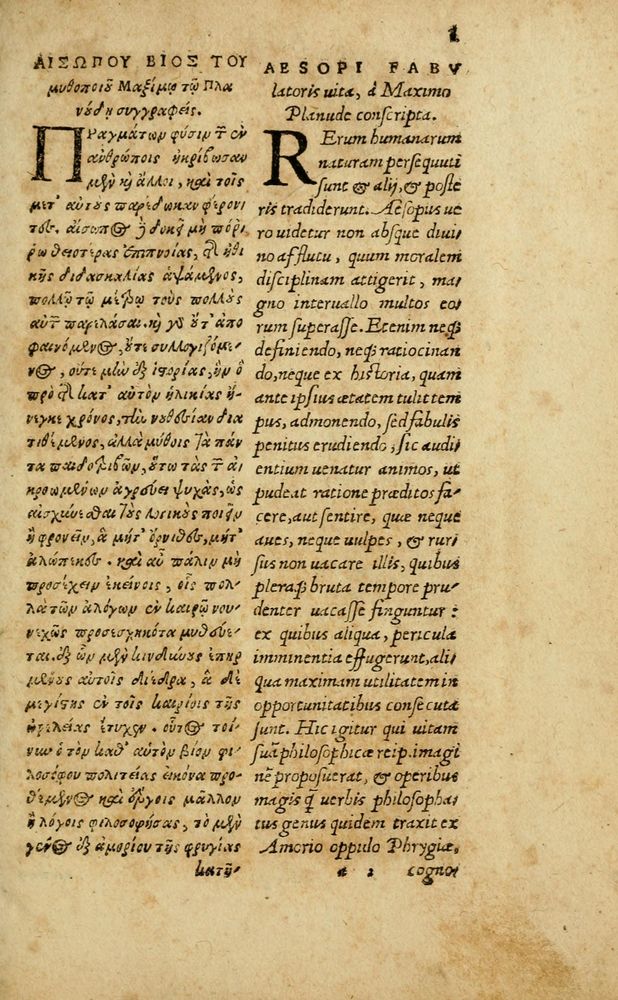 1
ΑΙΣΩΠΟΥ ΒΙΟΣ ΤΟΥ
μυθοποιοῦ Μαξίμῳ τῷ Πλα
νούδῃ συγγραφείς.
ΠΡαγμάτων φύσιν τ ἐν
ἀνθρώποις ἠκρίβωσαν
μὲν καὶ ἄλλοι, καὶ τοῖς
μετ' αὐτοὺς παρέδωκαν φέροντες. αἴσωπος δὲ δοκεῖ μὴ πόῤ
ῥω θειοτέρας ἐπιπνοίας, τῆς ἠθι
κῆς διδασκαλίας ἁψάμενος,
πολλῷ τῷ μέτρῳ τοὺς πολλοὺς
αὐτῶν παρελάσαι. καὶ γὰρ οὔτ' ἀπο
φαινόμενος, οὔτε συλλογιζόμε
νος, οὔτε μὴν ἐξ ἱστορίας, ἣν ὁ
πρὸ τῆς κατ' αὐτὸν ἡλικίας ἤ-
νεγκε χρόνος, τὴν νουθεσίαν δια
τιθέμενος, ἀλλὰ μύθοις τὸ πᾶν
τα παιδοτριβῶν, οὕτω τὰς τῶν ἀ
κροωμένων ἀγρεύει ψυχὰς, ὡς
αἰσχύνεσθαι τοὺς λογικοὺς ποιεῖν
ἢ φρονεῖν, ἃ μήτ' ὄρνιθες, μήτ'
ἀλώπεκες. καὶ αὖ πάλιν μὴ
προσέχειν ἐκείνοις, οἷς πολ-
λὰ τῶν ἀλόγων ἐν καιρῷ νου-
νεχῶς προσεσχηκότα μυθεύε-
ται. ἐξ ὧν μὲν κινδύνους ἐπηρ
μένους αὐτοῖς διέδρα, ἃ δὲ
μεγίστης ἐν τοῖς καιρίοις τῆς
ὠφελείας ἔτυχεν. οὗτος τοί-
νυν ὁ τὸν καθ' αὑτὸν βίον φι-
λοσόφου πολιτείας εἰκόνα προ-
θέμενος καὶ ἔργοις μᾶλλον
ἢ λόγοις φιλοσοφήσας, τὸ μὲν
γένος ἐξ ἀμορίου τῆς φρυγίας
κατῆ-
AESOPI FABV
latoris uita, à Maximo
Planude conscripta.
RErum humanarum
naturam persequuti
sunt & alij, & poste
ris tradiderunt. Aesopus ue
ro uidetur non absque diui
no afflatu, quum moralem
disciplinam attigerit, ma-
gno interuallo multos eo-
rum superasse. Etenim neq;
definiendo, neq; ratiocinan
do, neque ex historia, quam
ante ipsius ætatem tulit tem
pus, admonendo, sed fabulis
penitus erudiendo, sic audi
entium uenatur animos, ut
pudeat ratione præditos fa-
cere, aut sentire, quæ neque
aues, neque uulpes, & rur-
sus non uacare illis, quibus
pleraq; bruta tempore pru-
denter uacasse finguntur:
ex quibus aliqua, pericula
imminentia effugerunt, ali-
qua maximam utilitatem in
opportunitatibus consecuta
sunt. Hic igitur qui uitam
suā philosophicæ reip. imagi
nē proposuerat, & operibus
magis q̄ uerbis philosopha-
tus genus quidem traxit ex
Amorio oppulo Phrygiæ,
a 1 cogno-